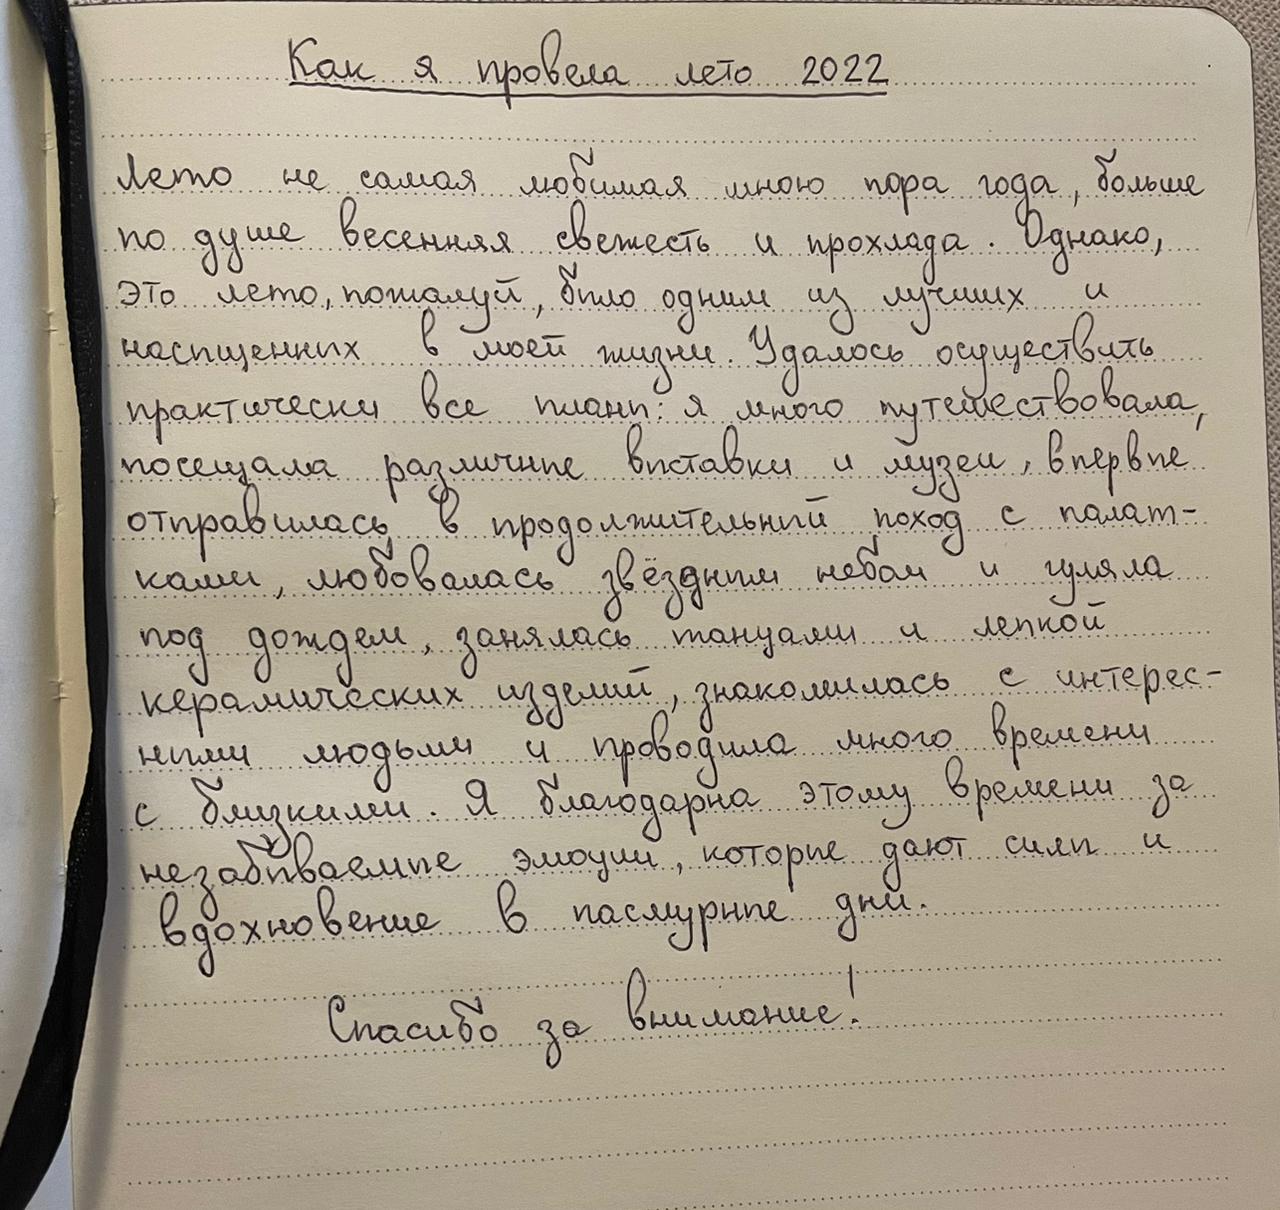 Как я провела лето 2022
Лето не самая любимая мною пора года, больше
по душе весенняя свежесть и прохлада. Однако,
это лето, пожалуй, было одним из лучших и
насыщенных в моей жизни. Удалось осуществить
практически все планы: я много путешествовала,
посещала различные выставки и музеи, впервые
отправилась в продолжительный поход с палат-
ками, любовалась звёздным небом и гуляла
под дождем, занялась танцами и лепкой
керамических изделий, знакомилась с интерес-
ными людьми и проводила много времени
с близкими. Я благодарна этому времени за
незабываемые эмоции, которые дают силы и
вдохновение в пасмурные дни.
Спасибо за внимание!